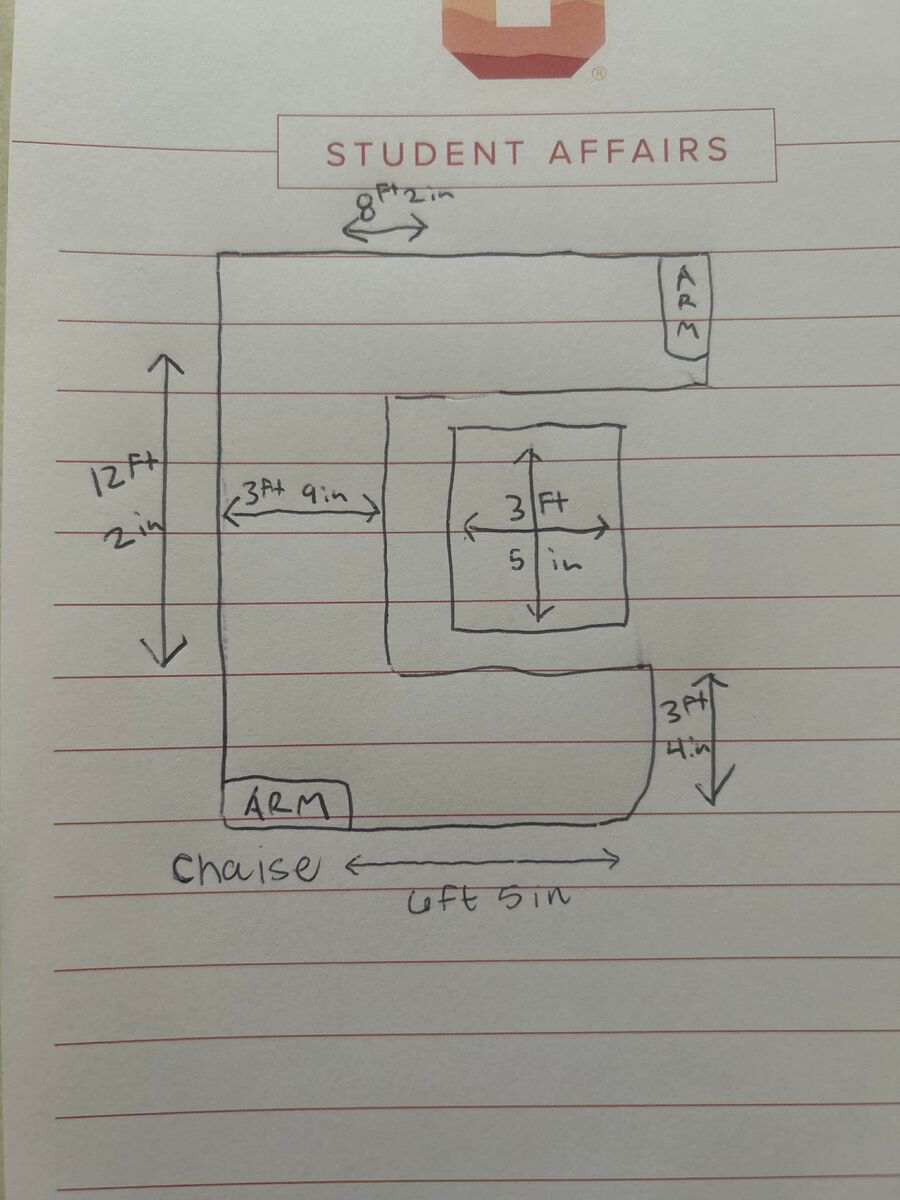 ®
STUDENT AFFAIRS
8Ft 2in
A
R
M
12Ft
2in
3ft 9in
3 Ft
5 in
3Ft
4in
ARM
Chaise
6ft 5in